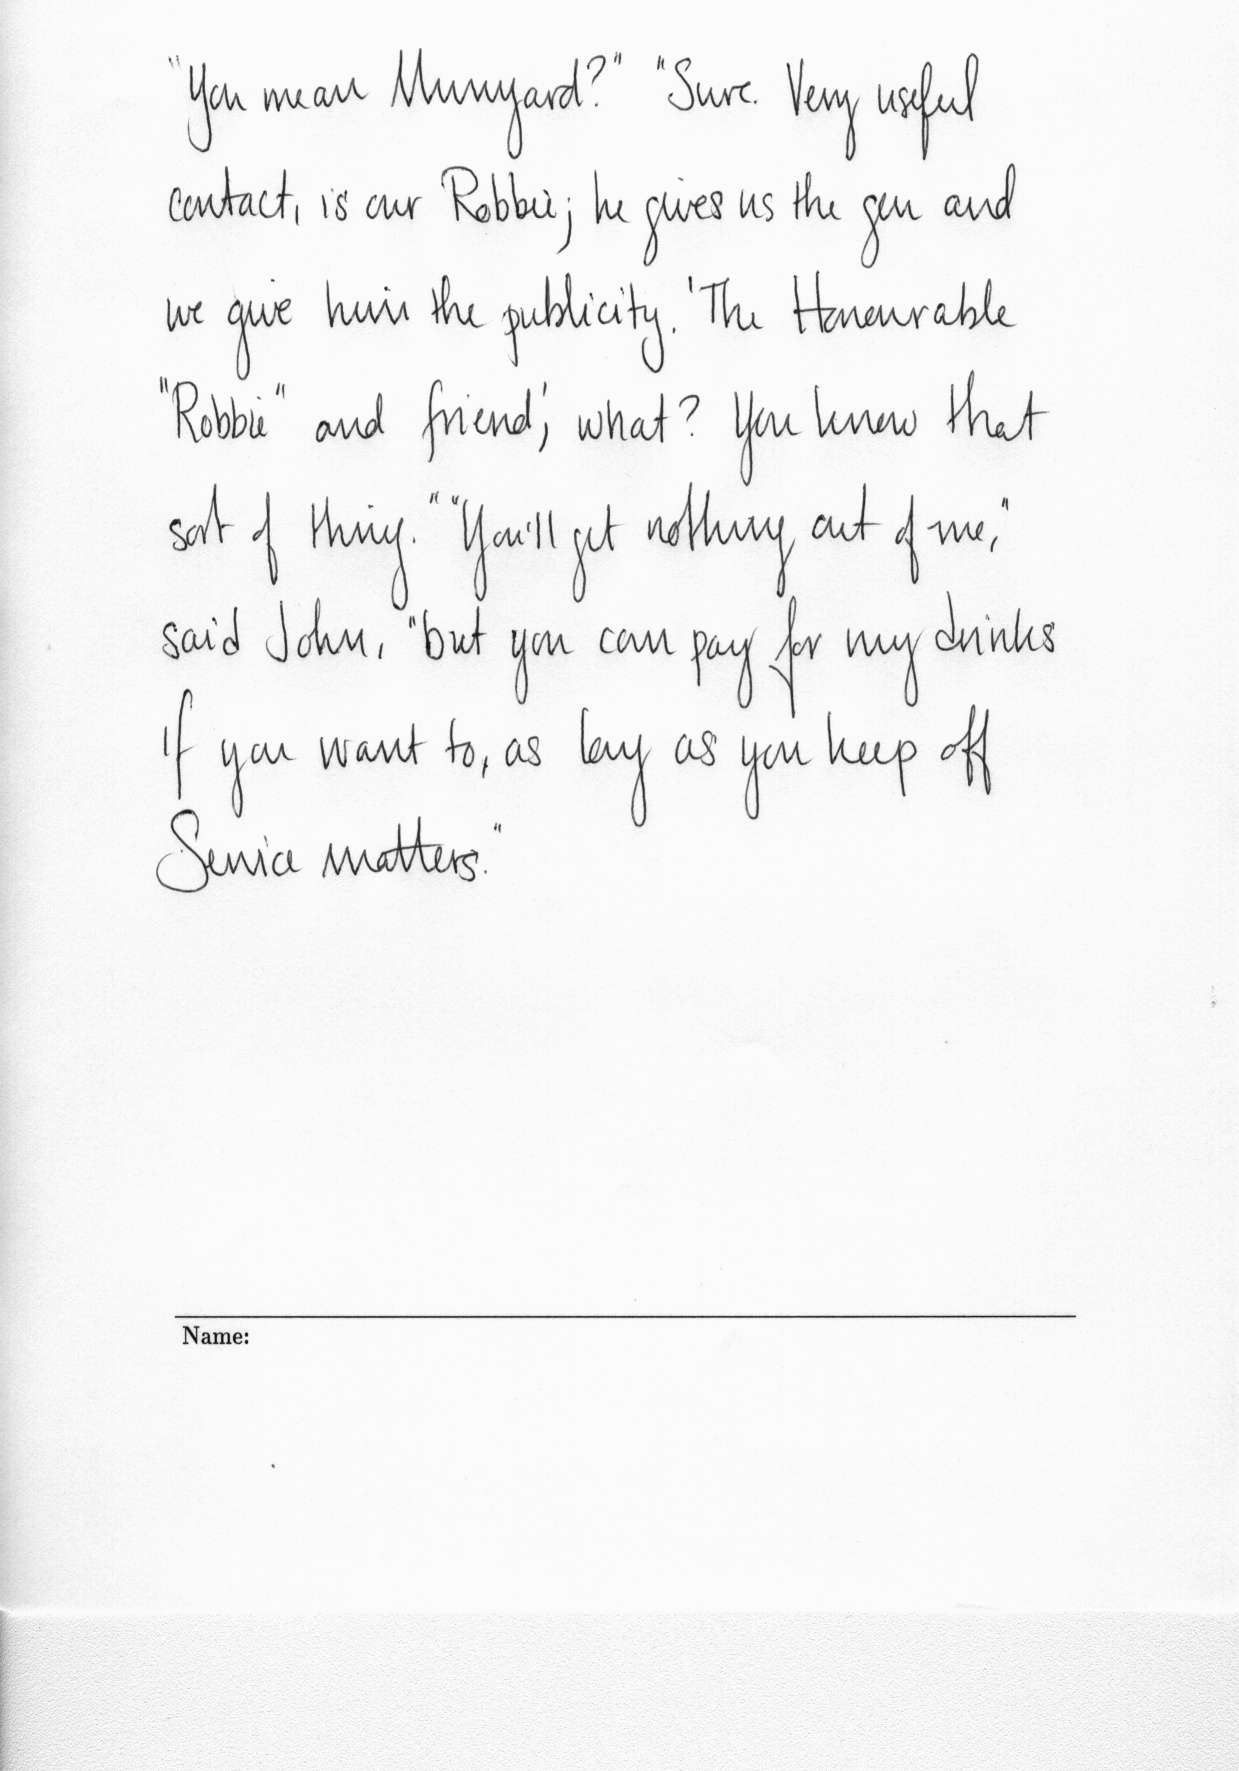 "You mean Munyard?" "Sure. Very useful
contact, is our Robbie; he gives us the gen and
we give him the publicity. 'The Honourable
"Robbie" and friend', what? You know that
sort of thing." "You'll get nothing out of me,"
said John, "but you can pay for my drinks
if you want to, as long as you keep off
Service matters."
Name: